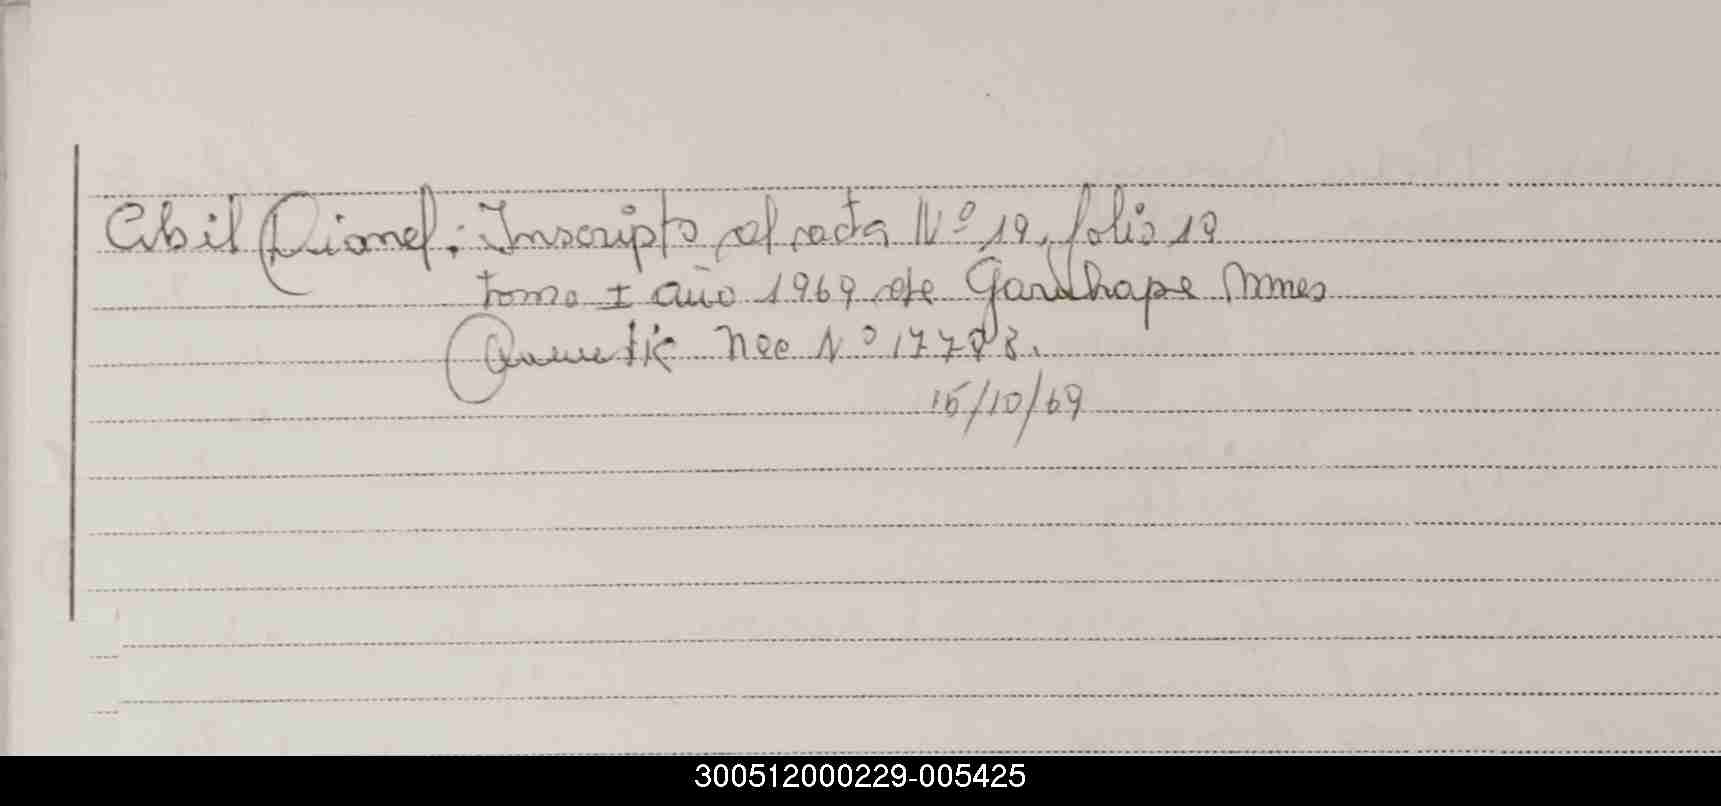 Abil Lionel: Inscripto al acta Nº 19, folio 19
tomo I año 1969 de Garuhape Mnes
Nº
15/10/69
300512000229-005425